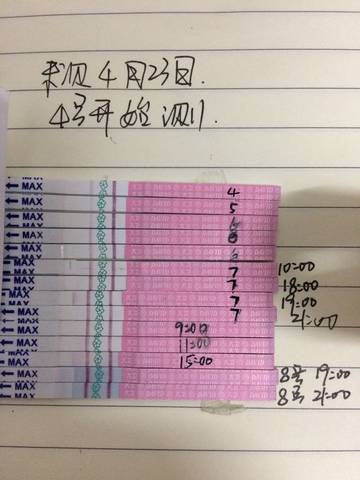 末次4月23日.
4号开始测
MAX 4
MAX 5
MAX 6
MAX
MAX 6
MAX 7 10:00
MAX 7 18:00
MAX 7 19:00
MAX 7 21:00
MAX 9:00
MAX 11:00
MAX 15:00
MAX 8号 19:00
MAX 8号 21:00